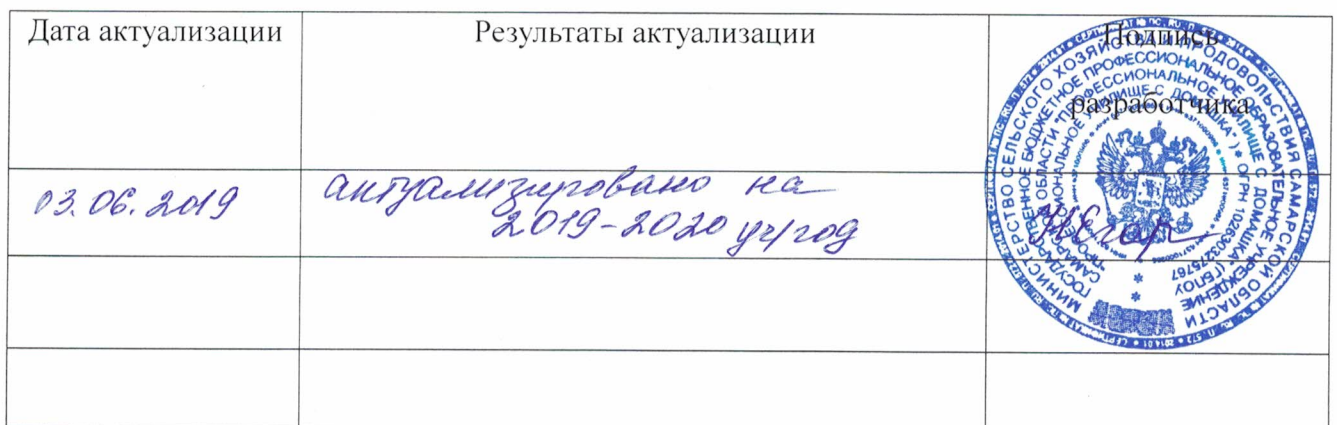 Дата актуализации
Результаты актуализации
Подпись
разработчика
03.06.2019
актуализировано на
2019-2020 уч/год
МИНИСТЕРСТВО СЕЛЬСКОГО ХОЗЯЙСТВА И ПРОДОВОЛЬСТВИЯ САМАРСКОЙ ОБЛАСТИ
ГОСУДАРСТВЕННОЕ БЮДЖЕТНОЕ ПРОФЕССИОНАЛЬНОЕ ОБРАЗОВАТЕЛЬНОЕ УЧРЕЖДЕНИЕ
САМАРСКОЙ ОБЛАСТИ "ПРОФЕССИОНАЛЬНОЕ УЧИЛИЩЕ С. ДОМАШКА" (ГБПОУ
"ПРОФЕССИОНАЛЬНОЕ УЧИЛИЩЕ С. ДОМАШКА") * ОГРН 1026303275767